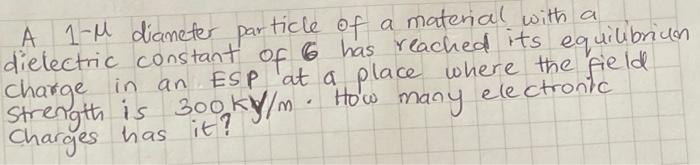 A 1-μ diameter particle of a material with a
dielectric constant of 6 has reached its equilibrium
charge in an ESP at a place where the field
strength is 300 KV/m. How many electronic
charges has it?